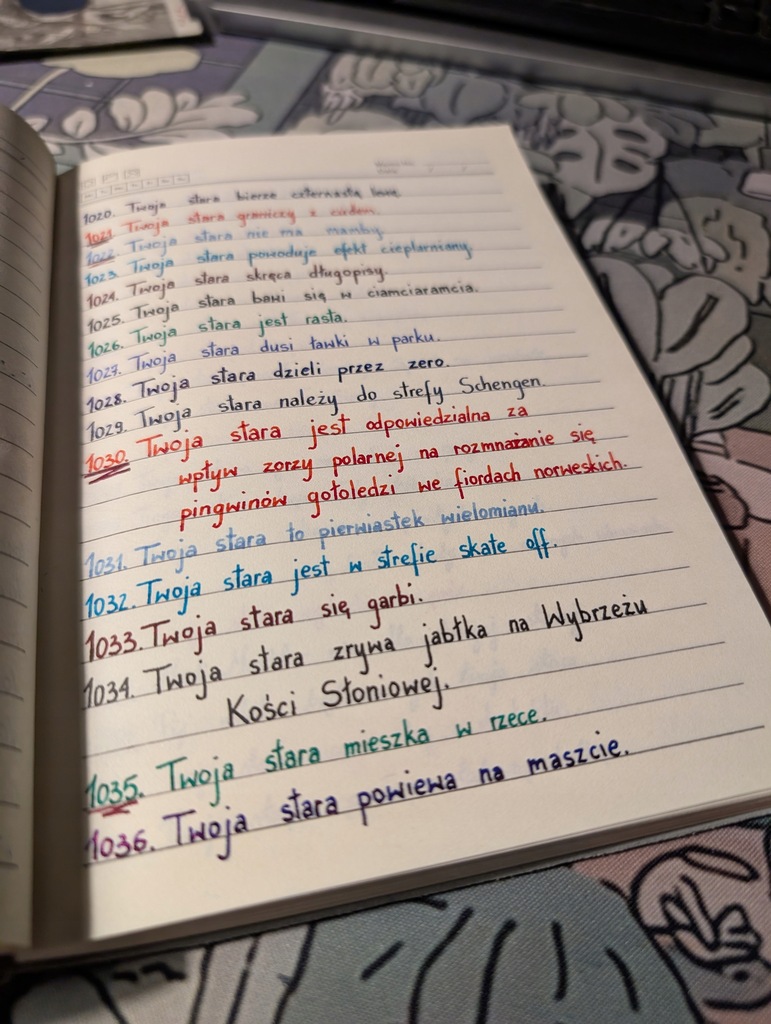 1020. Twoja stara bierze czternastą
1021. Twoja stara graniczy z cudem.
1022. Twoja stara nie ma mamby.
1023. Twoja stara powoduje efekt cieplarniany.
1024. Twoja stara skręca długopisy.
1025. Twoja stara bawi się w ciamciaramcia.
1026. Twoja stara jest rasta.
1027. Twoja stara dusi ławki w parku.
1028. Twoja stara dzieli przez zero.
1029. Twoja stara należy do strefy Schengen.
1030. Twoja stara jest odpowiedzialna za
wpływ zorzy polarnej na rozmnażanie się
pingwinów gołoledzi we fiordach norweskich.
1031. Twoja stara to pierwiastek wielomianu.
1032. Twoja stara jest w strefie skate off.
1033. Twoja stara się garbi.
1034. Twoja stara zrywa jabłka na Wybrzeżu
Kości Słoniowej.
1035. Twoja stara mieszka w rzece.
1036. Twoja stara powiewa na maszcie.